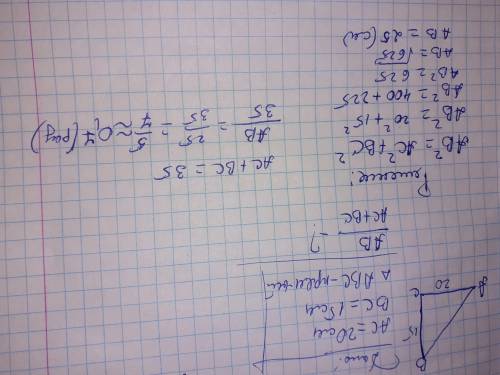 Дано:
AC = 20 см
BC = 15 см
△ ABC - прям-ый
AB
AC + BC - ?
B
15
C 20 A
Решение:
AB² = AC² + BC²
AB² = 20² + 15²
AB² = 400 + 225
AB² = 625
AB = √625
AB = 25 (см)
AC + BC = 35
AB/35 = 25/35 = 5/7 ≈ 0,7 (раз)